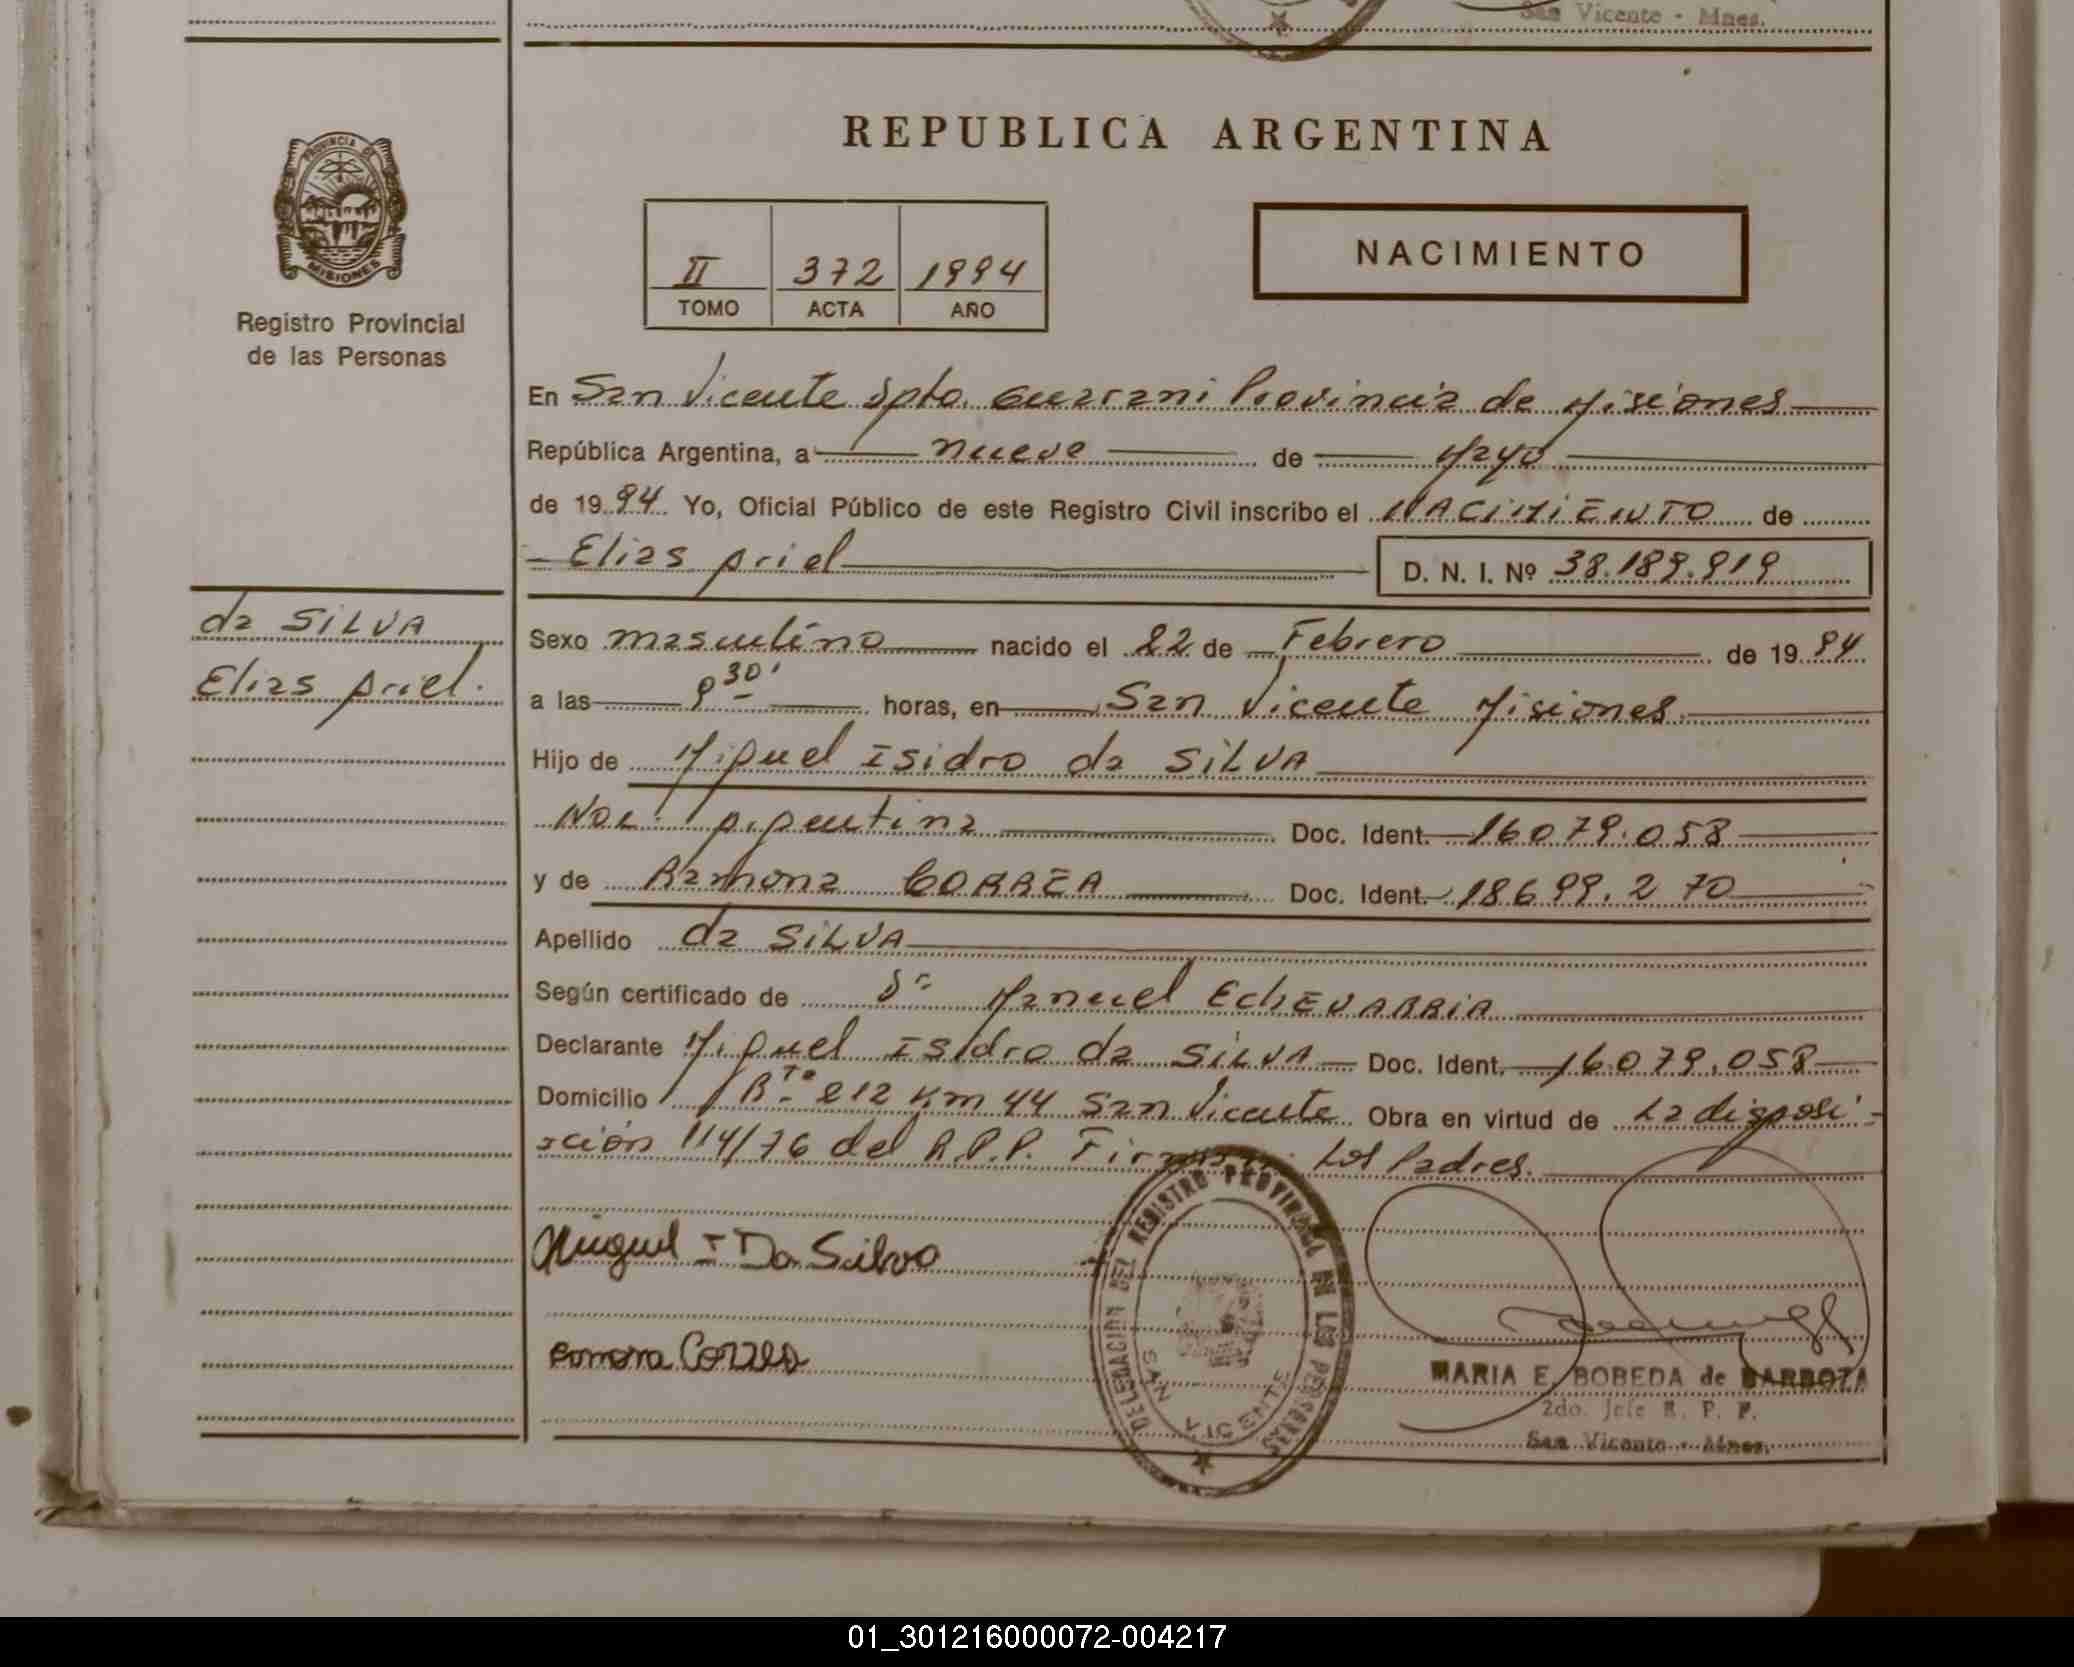 San Vicente - Mnes.
REPUBLICA ARGENTINA
PROVINCIA DE
MISIONES
Registro Provincial
de las Personas
II 372 1994
TOMO ACTA AÑO
NACIMIENTO
En San Vicente Dpto. Guarani Provincia de Misiones
República Argentina, a nueve de Mayo
de 1994 Yo, Oficial Público de este Registro Civil inscribo el NACIMIENTO de
Elias Ariel D. N. I. Nº 38.189.919
da SILVA
Elias Ariel.
Sexo masculino nacido el 22 de Febrero de 1994
a las 9 30' horas, en San Vicente Misiones
Hijo de Miguel Isidro da SILVA
Nac. Argentina Doc. Ident. 16079.058
y de Ramona CORREA Doc. Ident. 18699.270
Apellido da SILVA
Según certificado de Dr Manuel EchEVARRIA
Declarante Miguel Isidro da SILVA Doc. Ident. 16079.058
Domicilio Rta 212 Km 44 San Vicente Obra en virtud de La disposi-
ción 114/76 del R.P.P. Firman: Los Padres.
Miguel I Da Silva
Correa
DELEGACION DEL REGISTRO PROVINCIAL DE LAS PERSONAS
SAN VICENTE
MARIA E. BOBEDA de BARBOZA
2do. Jefe R. P. P.
San Vicente - Mnes.
01_301216000072-004217